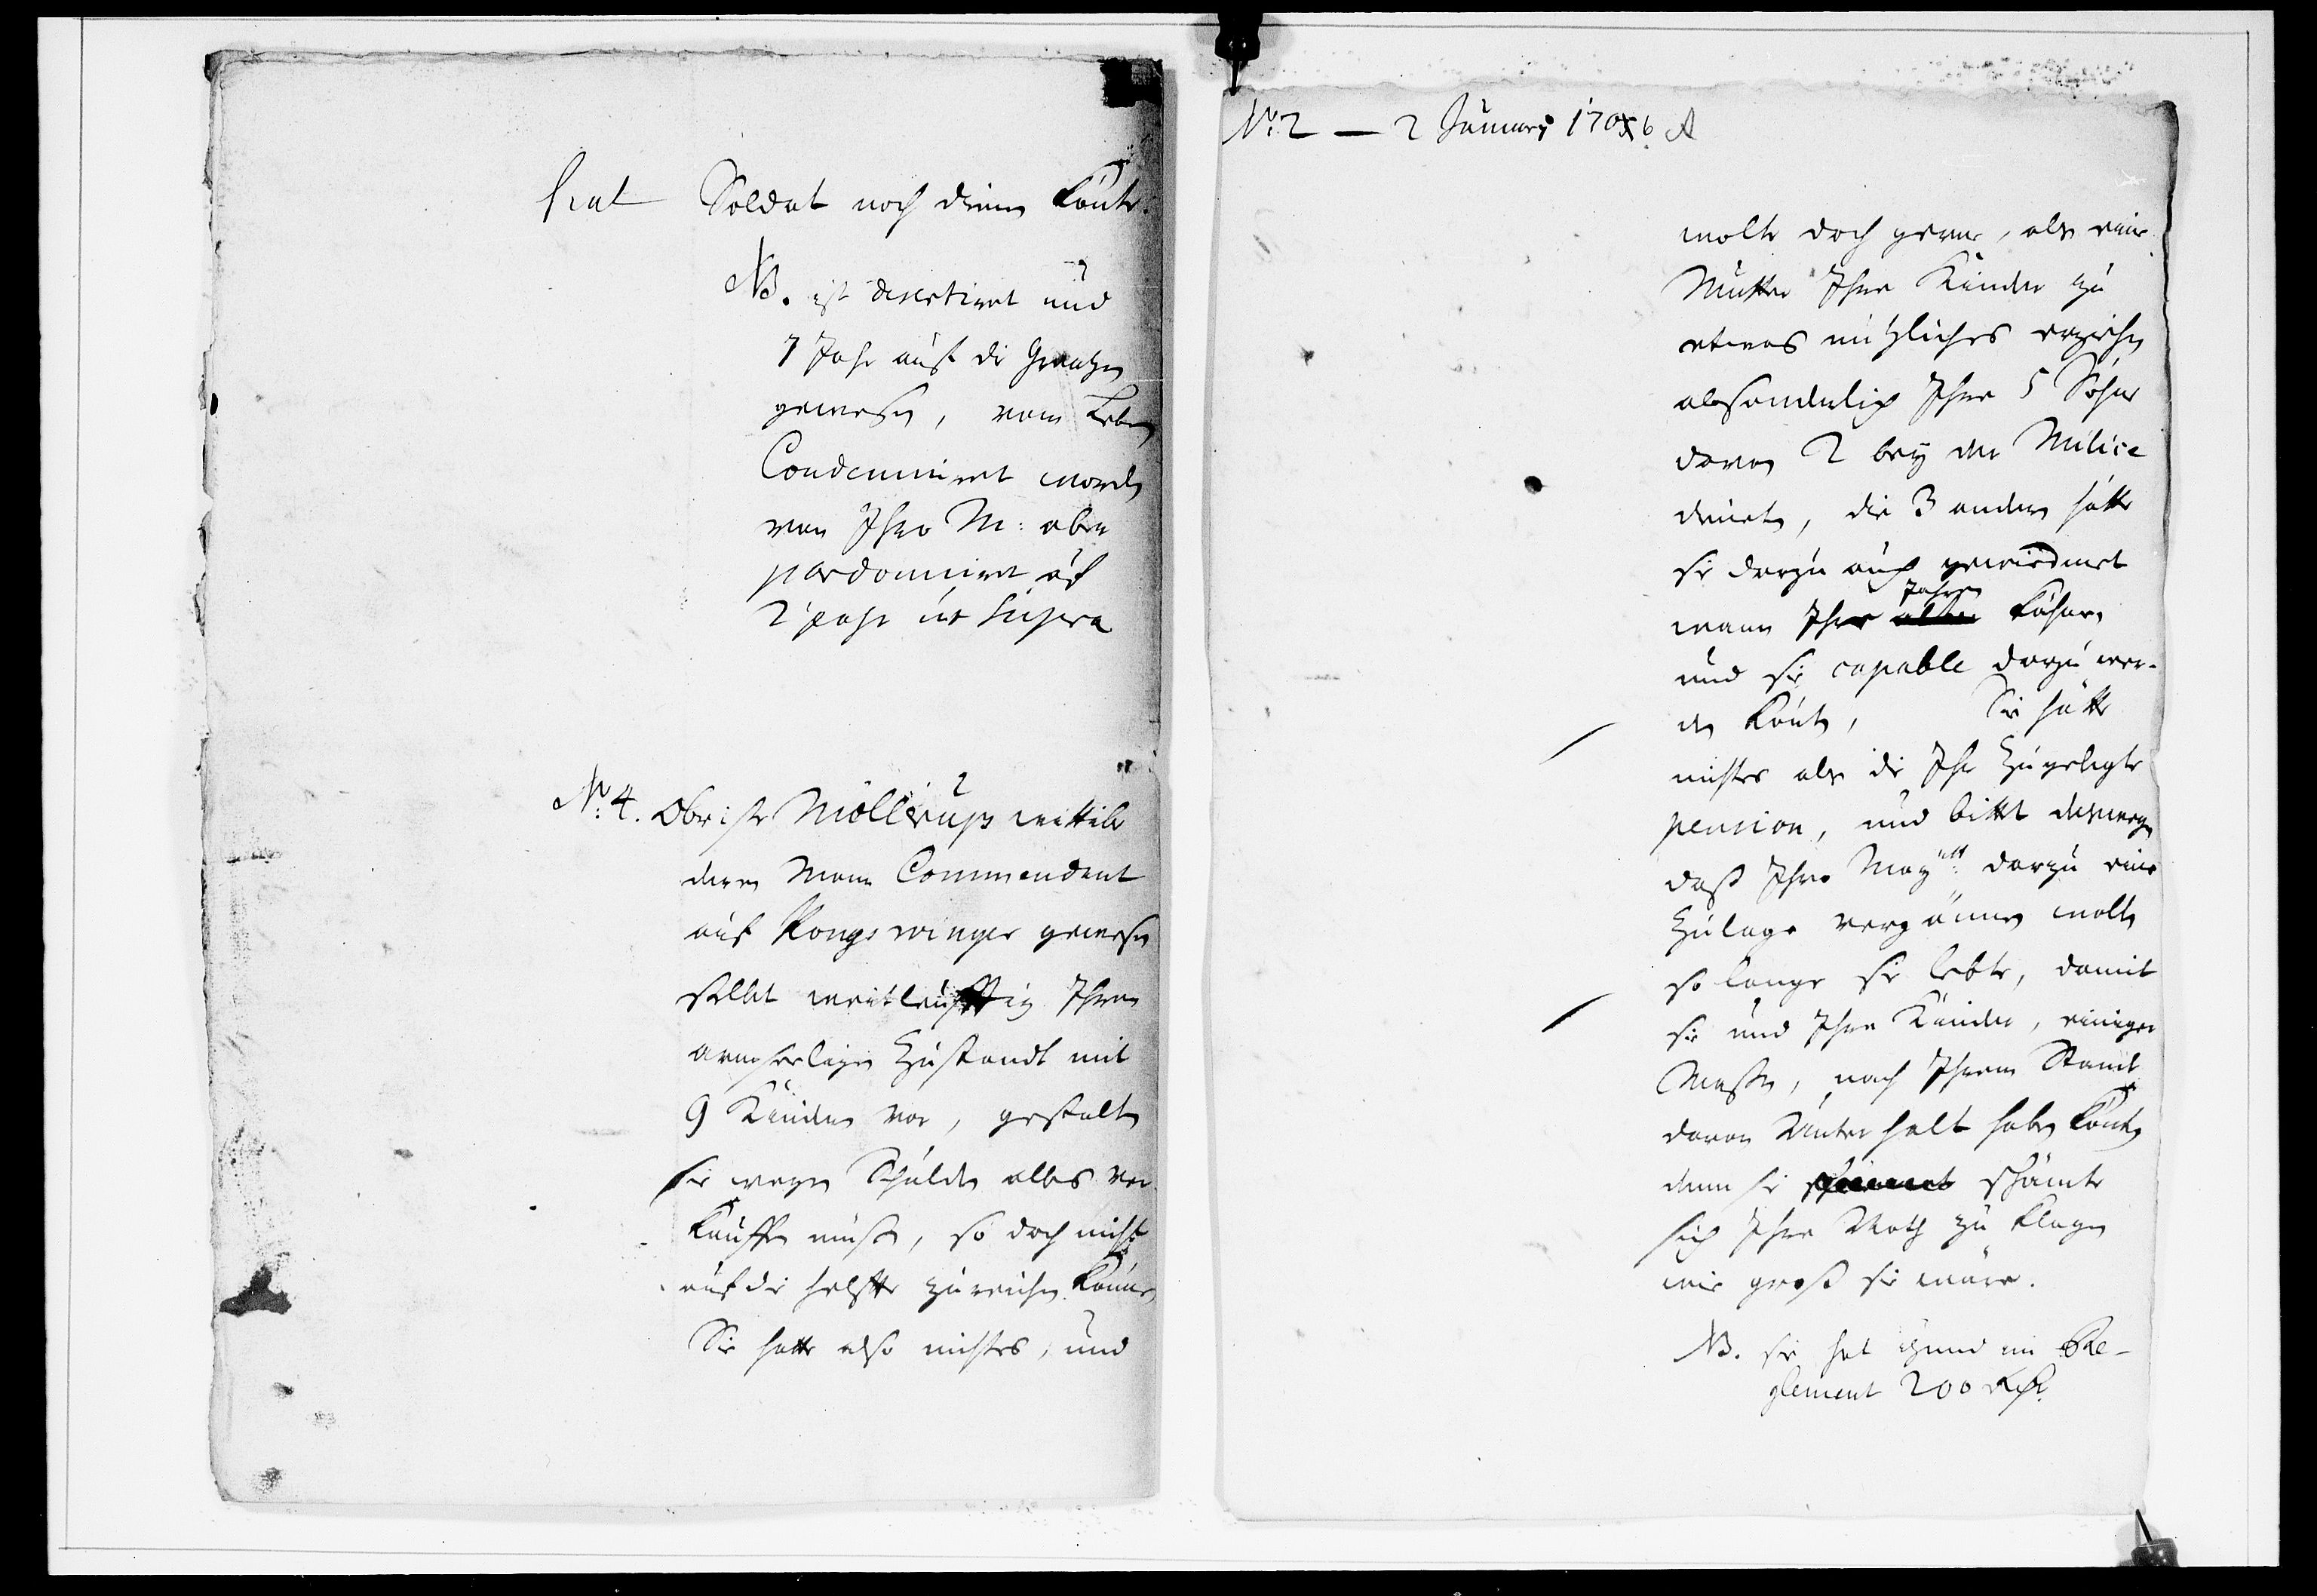 Soldat noch dienen könte.
NB. ist desertiret und
7 Jahr auf die Grentzen
gewesen, vom Leben
Condemniret worden
von Ihro M: aber
pardonniret auf
2 Jahr ut supra
No: 4. Obriste Möllerups wittibe
deren Mann Commendant
auf Kongswinger gewesen
stellet weitleufftig Ihren
armseeligen Zustandt mit
9 Kinder vor, gestalten
sie wegen Schulden alles ver-
kauffen müste, so doch nicht
auf die helffte zureichen könne,
Sie hatte also nichtes, und
No: 2 — 2 Januarj 1706. A
wolte doch gerne, als eine
Mutter Ihre Kinder zu
etwas nützliches erziehen
absonderlich Ihre 5 Söhne
davon 2 bey der Milice
dienten, die 3 andern hätte
sie darzu auch gewiedmet
wann Ihre alter Jahren
und sie capable darzu wer-
den könten, Sie hätte
nichtes als die Ihr Zugelegte
pension, und bittet deswegen
daß Ihro Mayett: darzu eine
Zulage vergönnen wolten
so lange sie lebte, damit
sie und Ihre Kinder, einiger
Massen, nach Ihrem Stand
davon Unterhalt haben könten
denn sie schämte
sich Ihre Noth zu klagen
wie groß sie wäre.
NB. sie hat itzund im Re-
glement 200 Rthr.